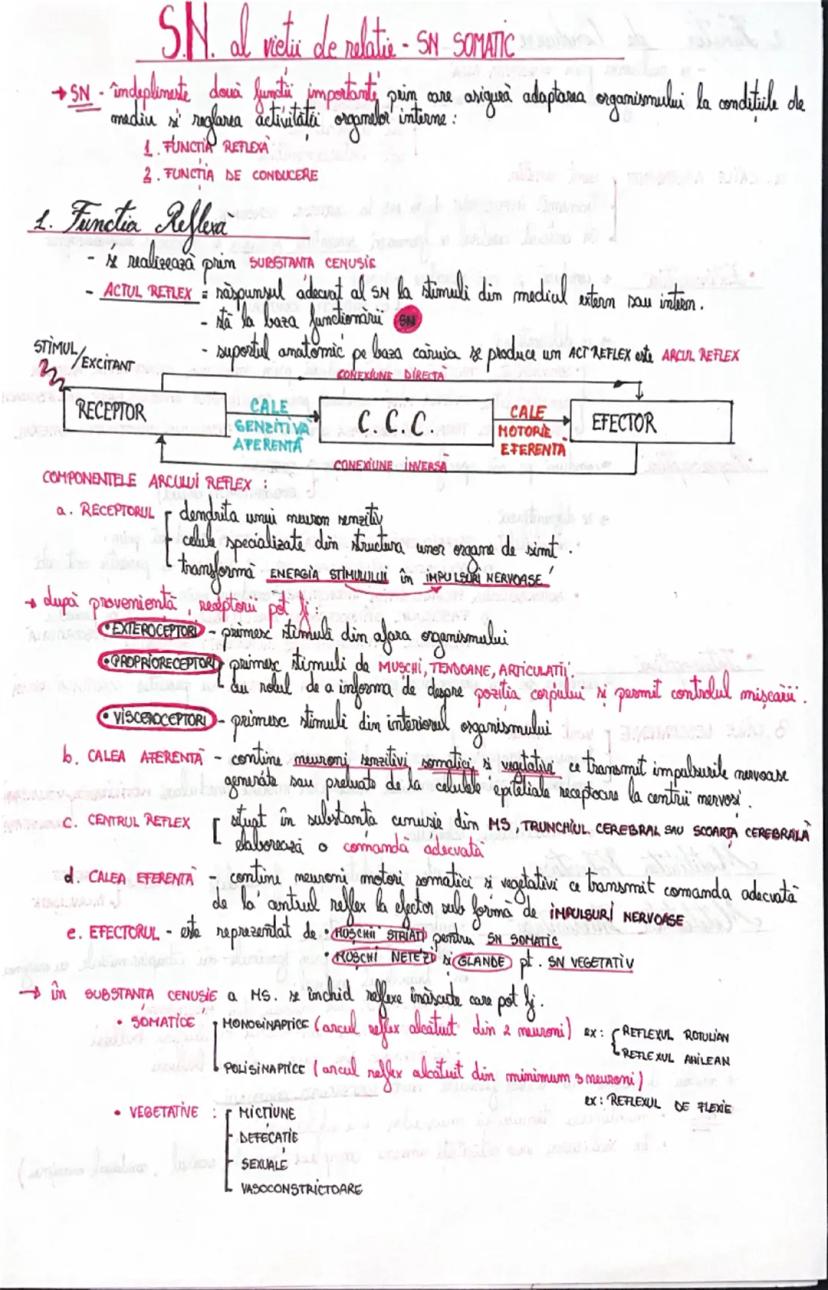 S.N. al vietii de relatie - SN SOMATIC
→ SN - îndeplineste două functii importante, prin care asigură adaptarea organismului la conditiile de
mediu si reglarea activitătii organelor interne:
1. FUNCTIA REFLEXĂ
2. FUNCTIA DE CONDUCERE
1. Functia Reflexă
- se realizează prin SUBSTANTA CENUSIE
- ACTUL REFLEX = răspunsul adecvat al SN la stimuli din mediul extern sau intern.
- stă la baza functionării SN
- suportul anatomic pe baza căruia se produce un ACT REFLEX este ARCUL REFLEX
STIMUL/EXCITANT
CONEXIUNE DIRECTĂ
RECEPTOR
CALE SENZITIVĂ AFERENTĂ
C.C.C.
CALE MOTORIE EFERENTĂ
EFECTOR
CONEXIUNE INVERSĂ
COMPONENTELE ARCULUI REFLEX :
a. RECEPTORUL dendrita unui neuron senzitiv
celule specializate din structura unor organe de simt.
transformă ENERGIA STIMULULUI în IMPULSURI NERVOASE
→ după provenientă, receptorii pot fi:
• EXTEROCEPTORI - primesc stimuli din afara organismului
• PROPRIORECEPTORI primesc stimuli de MUSCHI, TENDOANE, ARTICULATII
au rolul de a informa de despre pozitia corpului si permit controlul miscării.
• VISCEROCEPTORI - primesc stimuli din interiorul organismului
b. CALEA AFERENTĂ - contine neuroni senzitivi somatici si vegetativi ce transmit impulsurile nervoase
generate sau preluate de la celulele epiteliale receptoare la centrii nervosi.
c. CENTRUL REFLEX situat în substanta cenusie din MS, TRUNCHIUL CEREBRAL SAU SCOARTA CEREBRALĂ
elaborează o comandă adecvată
d. CALEA EFERENTĂ - contine neuroni motori somatici si vegetativi ce transmit comanda adecvată
de la centrul reflex la efector sub formă de IMPULSURI NERVOASE
e. EFECTORUL - este reprezentat de • MUSCHII STRIATI pentru SN SOMATIC
• MUSCHI NETEZI si GLANDE pt. SN VEGETATIV
→ în SUBSTANTA CENUSIE a MS. se închid reflexe înăscute care pot fi.
• SOMATICE MONOSINAPTICE (arcul reflex alcătuit din 2 neuroni) ex: REFLEXUL ROTULIAN
REFLEXUL AHILEAN
POLISINAPTICE (arcul reflex alcătuit din minimum 3 neuroni)
ex: REFLEXUL DE FLEXIE
• VEGETATIVE : MICTIUNE
DEFECATIE
SEXUALE
VASOCONSTRICTOARE